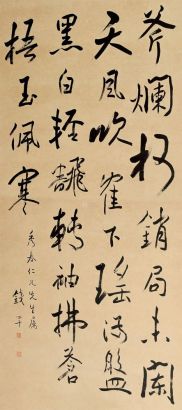 斧爛柯銷局未闌
天風吹隺下瑤滿盤
黑白輕飜轉袖拂蒼
梧玉佩寒
仁兄先生屬
錢